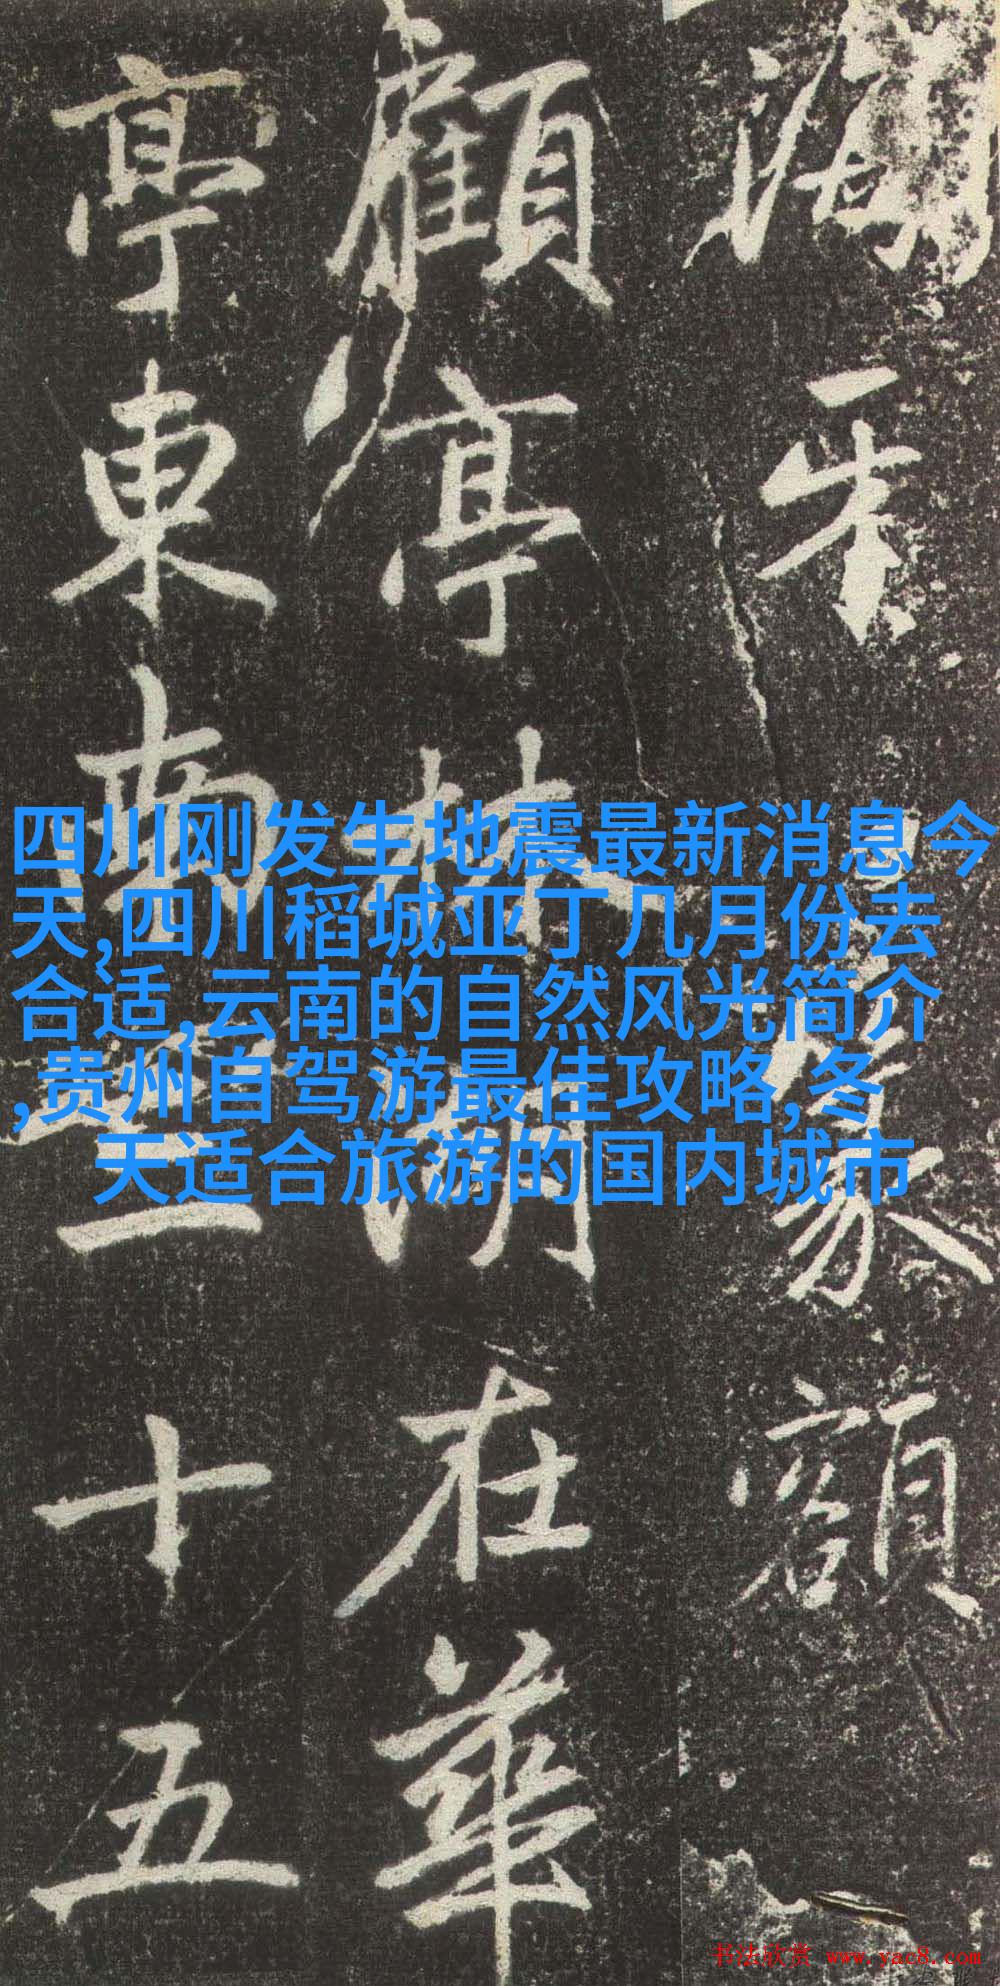 篆額
顧亭林湖在華
亭東南三十五
四川刚发生地震最新消息今
天,四川稻城亚丁几月份去
合适,云南的自然风光简介
,贵州自驾游最佳攻略,冬
天适合旅游的国内城市
书法欣赏 www.yac8.com